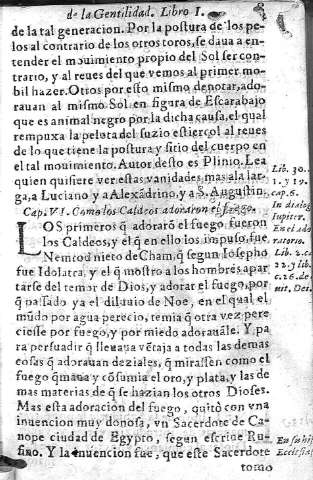 de la Gentilidad. Libro I.
de la tal generacion. Por la postura de los pe-
los al contrario de los otros toros, se daua a en-
tender el mouimiento propio del Sol ser con-
trario, y al reues del que vemos al primer mo-
bil hazer. Otros por esto mismo denotar, ado-
rauan al mismo Sol en figura de Escarabajo
que es animal negro por la dicha causa, el qual
rempuxa la pelota del suzio estiercol al reues
de lo que tiene la postura y sitio del cuerpo en
el tal mouimiento. Autor desto es Plinio. Lea
quien quisiere ver estas vanidades mas a la lar-
ga, a Luciano y a Alexãdrino, y a S. Augustin.
Lib. 30.
1. y 19.
cap. 6.
In dialog
Iupiter.
En el ado
ratorio.
Lib. 2. ca
22. y lib.
c. 26. de
uit. Dei.
Cap. VI. Como los Caldeos adoraron el fuego.
LOS primeros q̃ adorarõ el fuego, fueron
los Caldeos, y el q̃ en ello los impuso, fue
Nemrod nieto de Cham, q̃ segun Iosepho
fue Idolatra, y el q̃ mostro a los hombres apar
tarse del temor de Dios, y adorar el fuego, por
q̃ pasado ya el diluuio de Noe, en el qual el
mũdo por agua perecio, temia q̃ otra vez pere
ciesse por fuego, y por miedo adorauãle. Y pa
ra persuadir q̃ lleuaua vẽtaja a todas las demas
cosas q̃ adorauan deziales, q̃ mirassen como el
fuego q̃maua y cõsumia el oro, y plata, y las de
mas materias de q̃ se hazian los otros Dioses.
Mas esta adoracion del fuego, quitò con vna
inuencion muy donosa, vn Sacerdote de Ca-
nope ciudad de Egypto, segun escriue Ru-
fino. Y la inuencion fue, que este Sacerdote
En su hist
Ecclesia
tomo